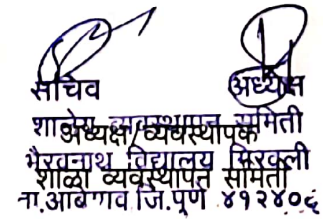 सचिव अध्यक्ष
शालेय व्यवस्थापन समिती
अध्यक्ष/व्यवस्थापक
भैरवनाथ विद्यालय
शाळा व्यवस्थापन समिती
ता.आंबेगाव जि.पुणे ४१२४०६